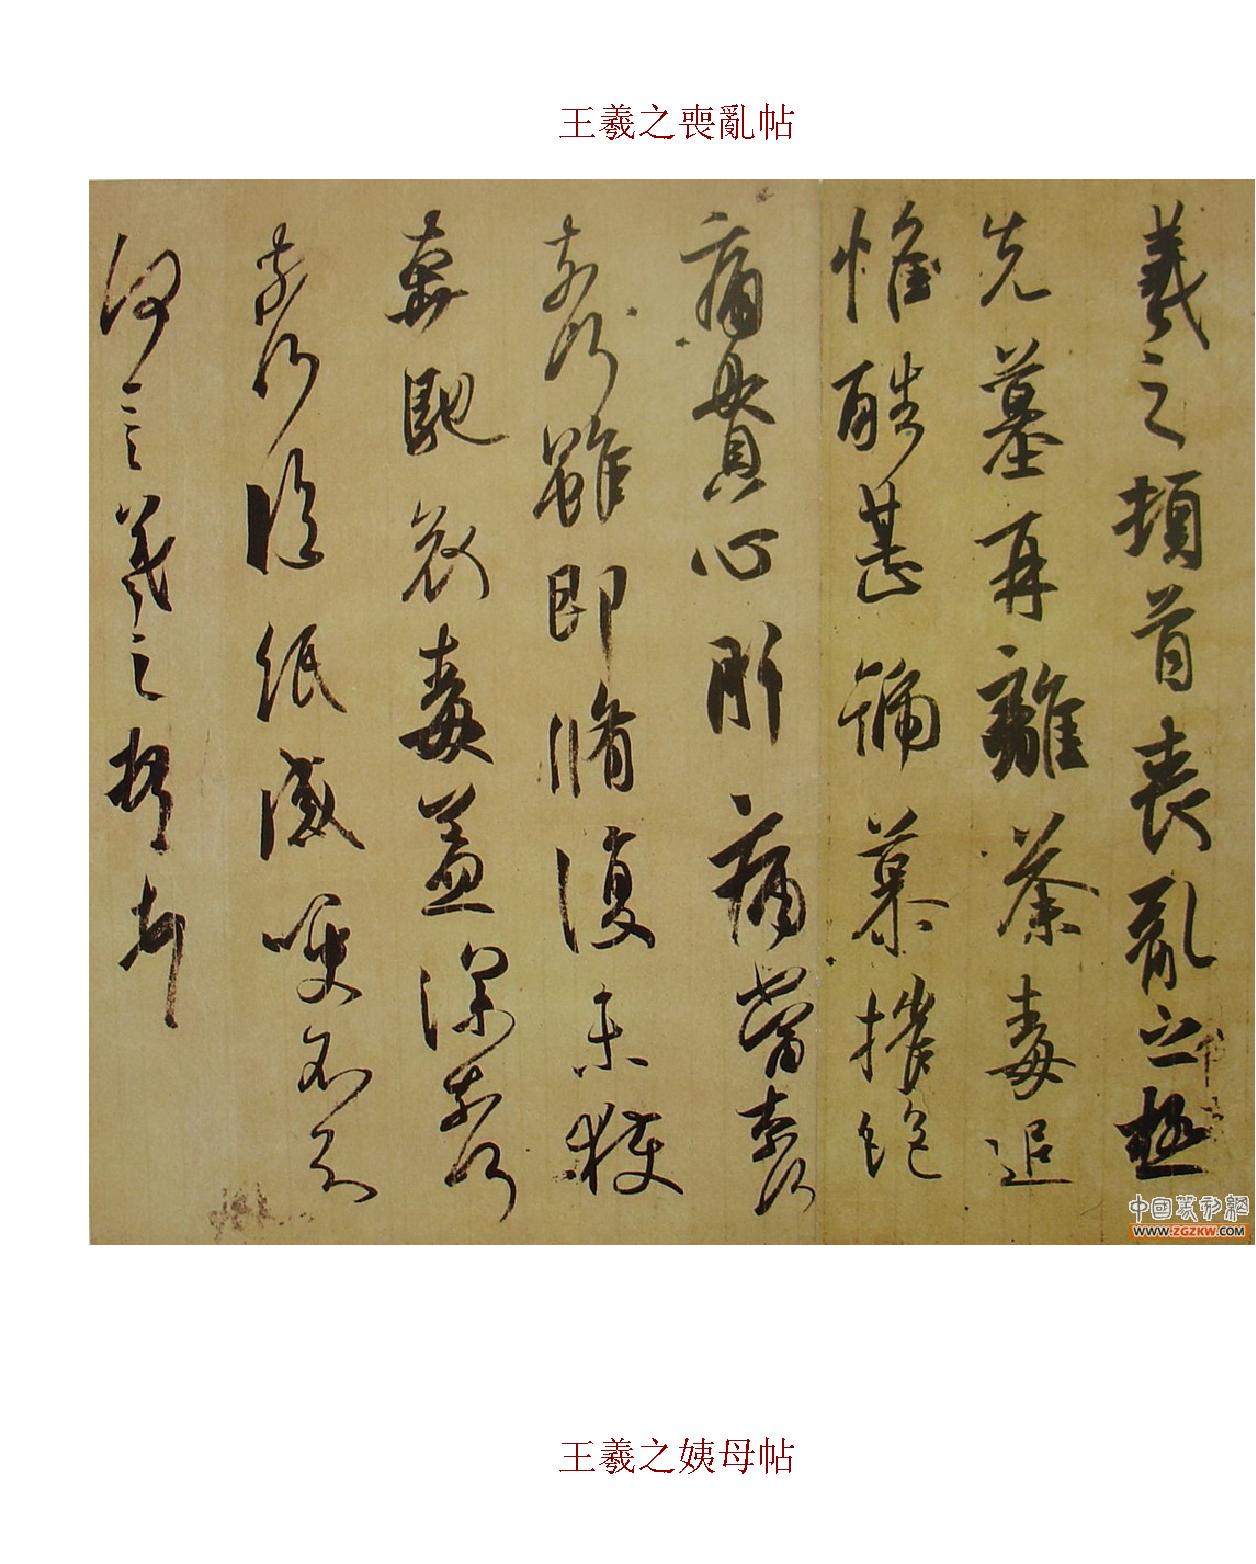 王羲之喪亂帖
羲之頓首喪亂之極
先墓再離荼毒追
惟酷甚號慕摧絕
痛貫心肝痛當奈何
奈何雖即脩復未獲
奔馳哀毒益深奈何
奈何臨紙感哽不知
何言羲之頓首
中國篆刻網
www.ZGZKW.COM
王羲之姨母帖